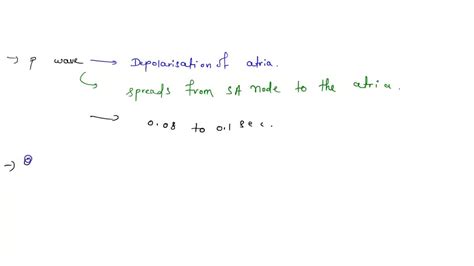 → P wave → Depolarisation of atria.
↳ spreads from SA node to the atria.
→ 0.08 to 0.1 sec.
→